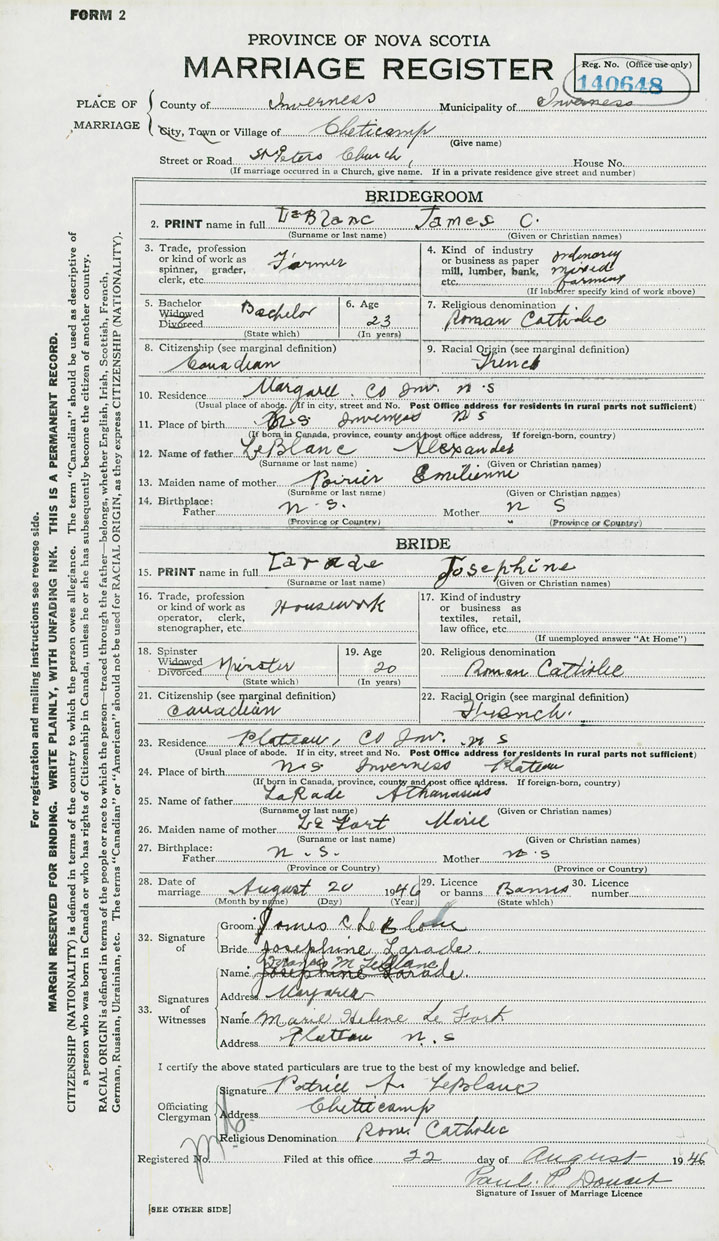 FORM 2
PROVINCE OF NOVA SCOTIA
MARRIAGE REGISTER
Reg. No. (Office use only)
140648
PLACE OF MARRIAGE
County of Inverness Municipality of Inverness
City, Town or Village of Cheticamp
(Give name)
Street or Road St Peters Church, House No.
(If marriage occurred in a Church, give name. If in a private residence give street and number)
BRIDEGROOM
2. PRINT name in full LeBlanc James C.
(Surname or last name) (Given or Christian names)
3. Trade, profession or kind of work as spinner, grader, clerk, etc. Farmer
4. Kind of industry or business as paper mill, lumber, bank, etc. ordinary mixed farming
(If laborer specify kind of work above)
5. Bachelor Widowed Divorced Bachelor
(State which)
6. Age 23
(In years)
7. Religious denomination
Roman Catholic
8. Citizenship (see marginal definition)
Canadian
9. Racial Origin (see marginal definition)
French
10. Residence Margaree Co Inv. N.S
(Usual place of abode. If in city, street and No. Post Office address for residents in rural parts not sufficient)
11. Place of birth N.S Inverness N S
(If born in Canada, province, county and post office address. If foreign-born, country)
12. Name of father LeBlanc Alexander
(Surname or last name) (Given or Christian names)
13. Maiden name of mother Poirier Emilienne
(Surname or last name) (Given or Christian names)
14. Birthplace: Father N. S. Mother N S
(Province or Country) " (Province or Country)
BRIDE
15. PRINT name in full Larade Josephine
(Surname or last name) (Given or Christian names)
16. Trade, profession or kind of work as operator, clerk, stenographer, etc. Housework
17. Kind of industry or business as textiles, retail, law office, etc.
(If unemployed answer "At Home")
18. Spinster Widowed Divorced Spinster
(State which)
19. Age 20
(In years)
20. Religious denomination
Roman Catholic
21. Citizenship (see marginal definition)
Canadian
22. Racial Origin (see marginal definition)
French.
23. Residence Plateau, Co Inv. N S
(Usual place of abode. If in city, street and No. Post Office address for residents in rural parts not sufficient)
24. Place of birth N.S Inverness Plateau
(If born in Canada, province, county and post office address. If foreign-born, country)
25. Name of father LaRade Athanasius
(Surname or last name) (Given or Christian names)
26. Maiden name of mother Le Fort Marie
(Surname or last name) (Given or Christian names)
27. Birthplace: Father N. S. Mother N. S
(Province or Country) (Province or Country)
28. Date of marriage August 20 1946
(Month by name) (Day) (Year)
29. Licence or banns Banns
(State which)
30. Licence number
32. Signature of
Groom James C LeBlanc
Bride Josephine Larade.
33. Signatures of Witnesses
Francis M LeBlanc
Name Josephine Larade.
Address Margaree
Name Marie Helene Le Fort
Address Plateau N.S
I certify the above stated particulars are true to the best of my knowledge and belief.
Officiating Clergyman
Signature Patrice A. LeBlanc
Address Chetticamp
Religious Denomination Rom. Catholic
Registered No. Filed at this office 22 day of August 1946
Paul. P Doucet
Signature of Issuer of Marriage Licence
[SEE OTHER SIDE]
For registration and mailing instructions see reverse side.
MARGIN RESERVED FOR BINDING. WRITE PLAINLY, WITH UNFADING INK. THIS IS A PERMANENT RECORD.
CITIZENSHIP (NATIONALITY) is defined in terms of the country to which the person owes allegiance. The term "Canadian" should be used as descriptive of
a person who was born in Canada or who has rights of Citizenship in Canada, unless he or she has subsequently become the citizen of another country.
RACIAL ORIGIN is defined in terms of the people or race to which the person—traced through the father—belongs, whether English, Irish, Scottish, French,
German, Russian, Ukrainian, etc. The terms "Canadian" or "American" should not be used for RACIAL ORIGIN, as they express CITIZENSHIP (NATIONALITY).